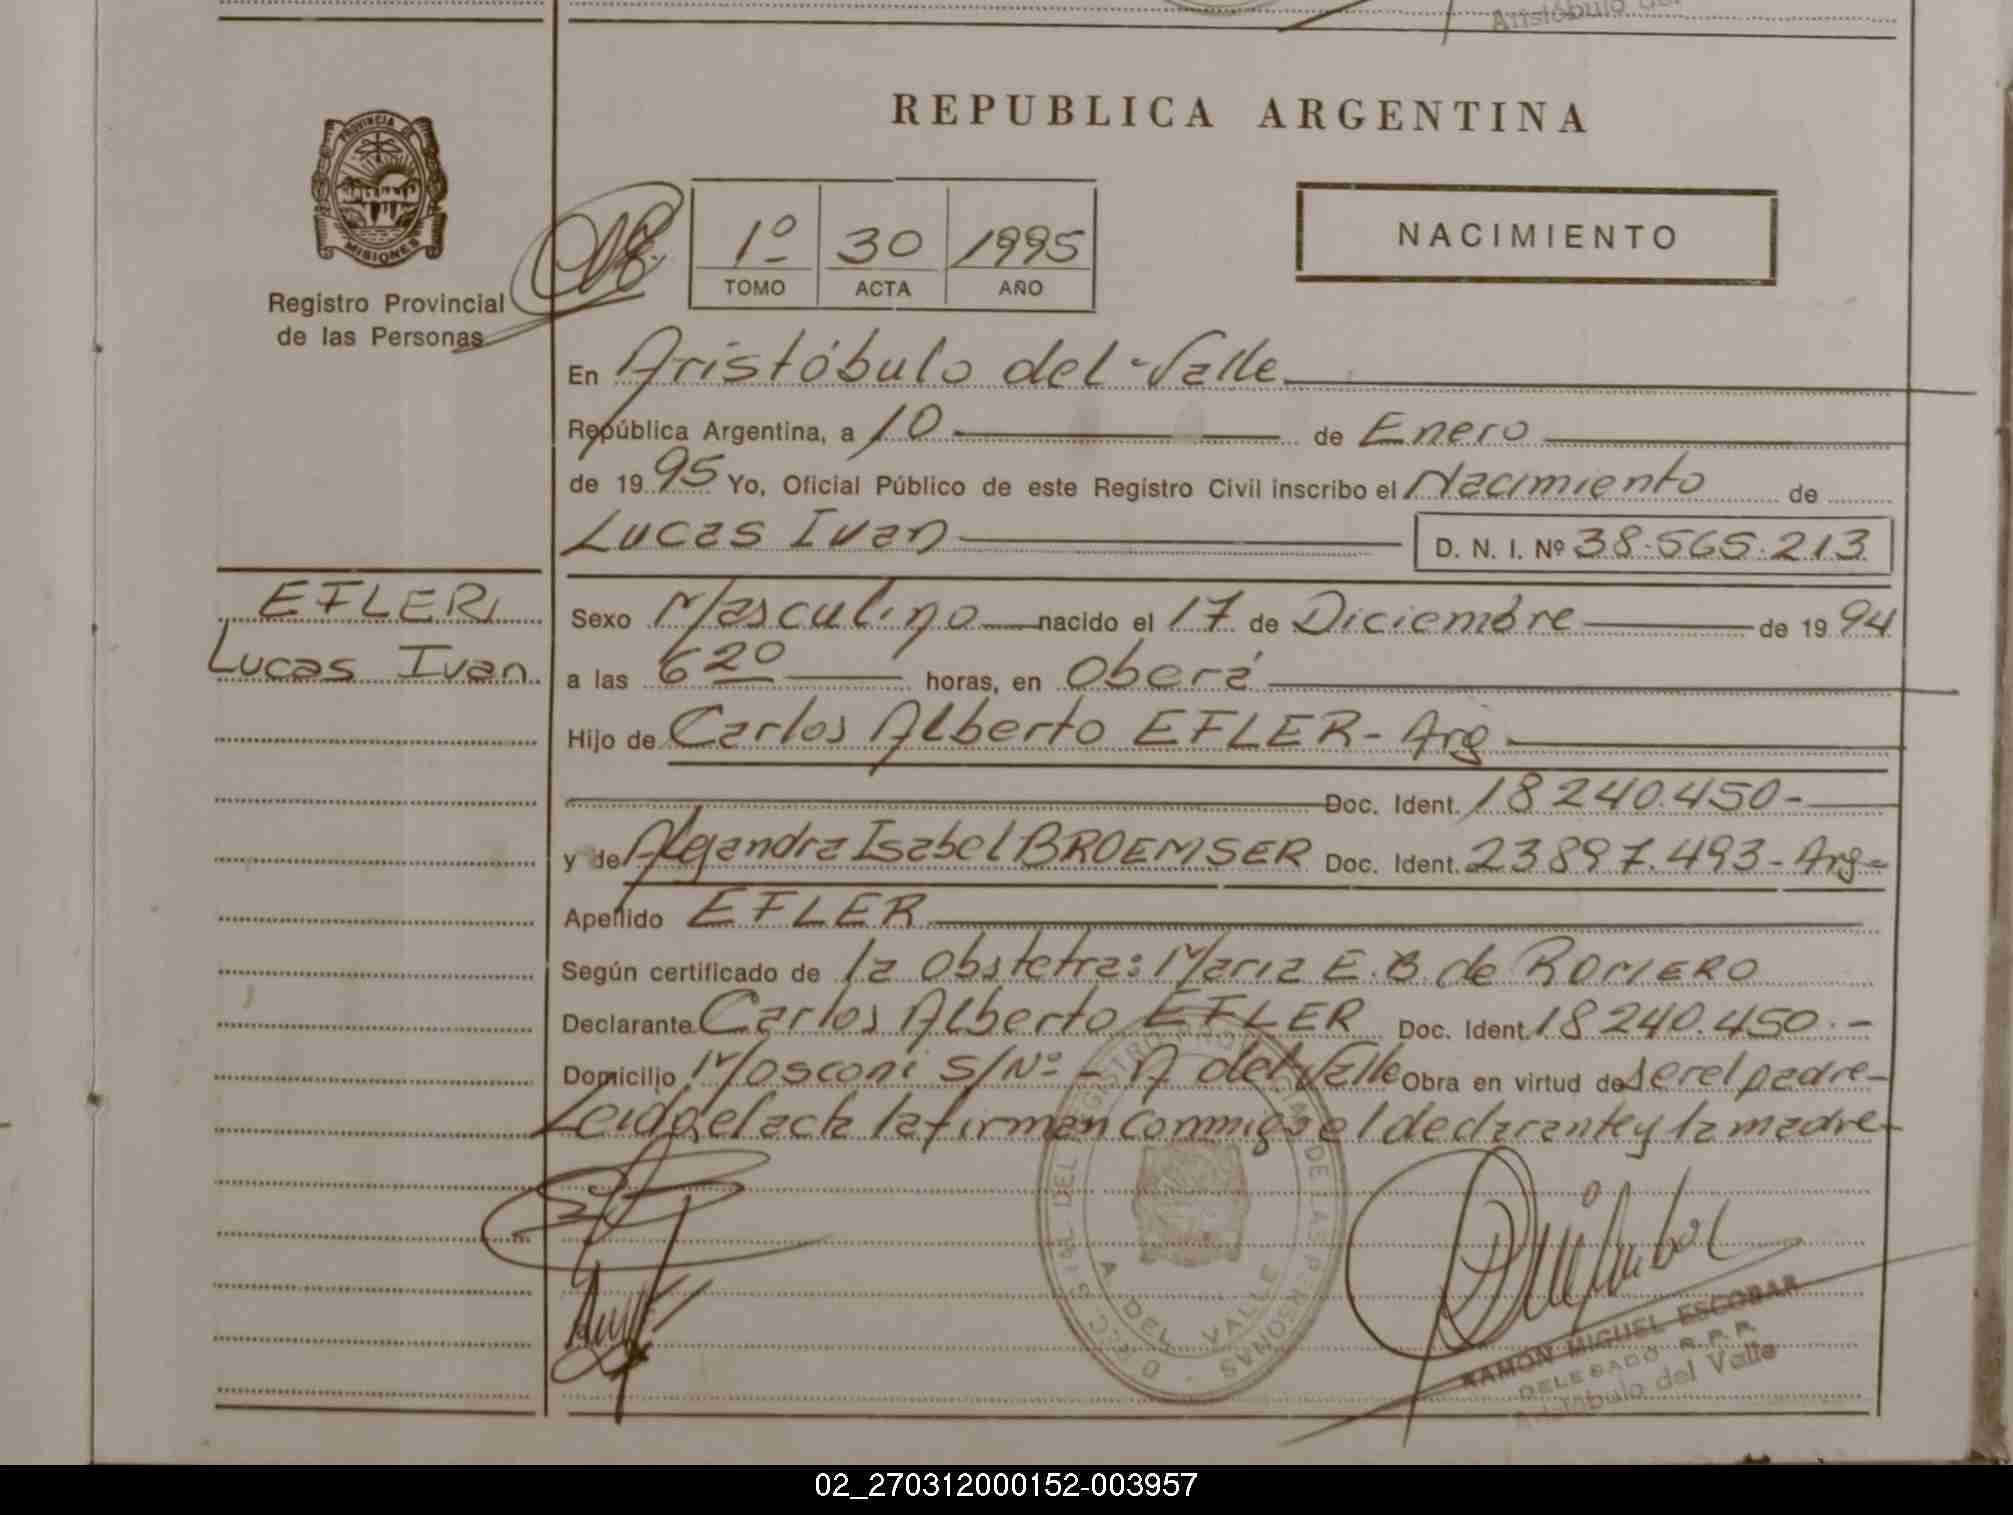 Aristóbulo del
REPUBLICA ARGENTINA
PROVINCIA DE
MISIONES
Registro Provincial
de las Personas
1º 30 1995
TOMO ACTA AÑO
NACIMIENTO
En Aristóbulo del Valle
República Argentina, a 10 de Enero
de 1995 Yo, Oficial Público de este Registro Civil inscribo el Nacimiento de
Lucas Ivan D. N. I. Nº 38.565.213
EFLER,
Lucas Ivan
Sexo Masculino nacido el 17 de Diciembre de 1994
a las 6 20 horas, en Oberá
Hijo de Carlos Alberto EFLER - Arg
Doc. Ident. 18240.450-
y de Alejandra Isabel BROEMSER Doc. Ident. 23897.493- Arg-
Apellido EFLER
Según certificado de la Obstetra: Maria E. B. de ROMERO
Declarante Carlos Alberto EFLER Doc. Ident. 18240.450.-
Domicilio Mosconi S/Nº - A del Valle Obra en virtud de ser el padre-
Leida el acta la firman conmigo el declarante y la madre-
DEL REGISTRO PROVINCIAL DE LAS PERSONAS
A. DEL VALLE
RAMON MIGUEL ESCOBAR
DELEGADO R.P.P.
Aristóbulo del Valle
02_270312000152-003957